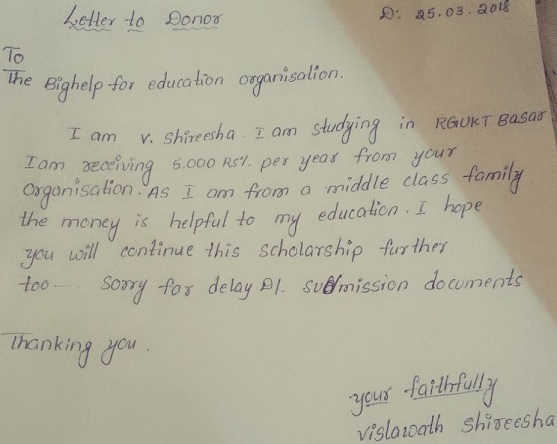 Letter to Donor
D: 25.03.2018
To
The Bighelp for education organisation.
I am v. shireesha. I am studying in RGUKT Basar
I am receiving 5.000 RS/. per year from your
Organisation. As I am from a middle class family
the money is helpful to my education. I hope
you will continue this scholarship further
too.... sorry for delay submission documents
Thanking you.
your faithfully
vislawath shireesha